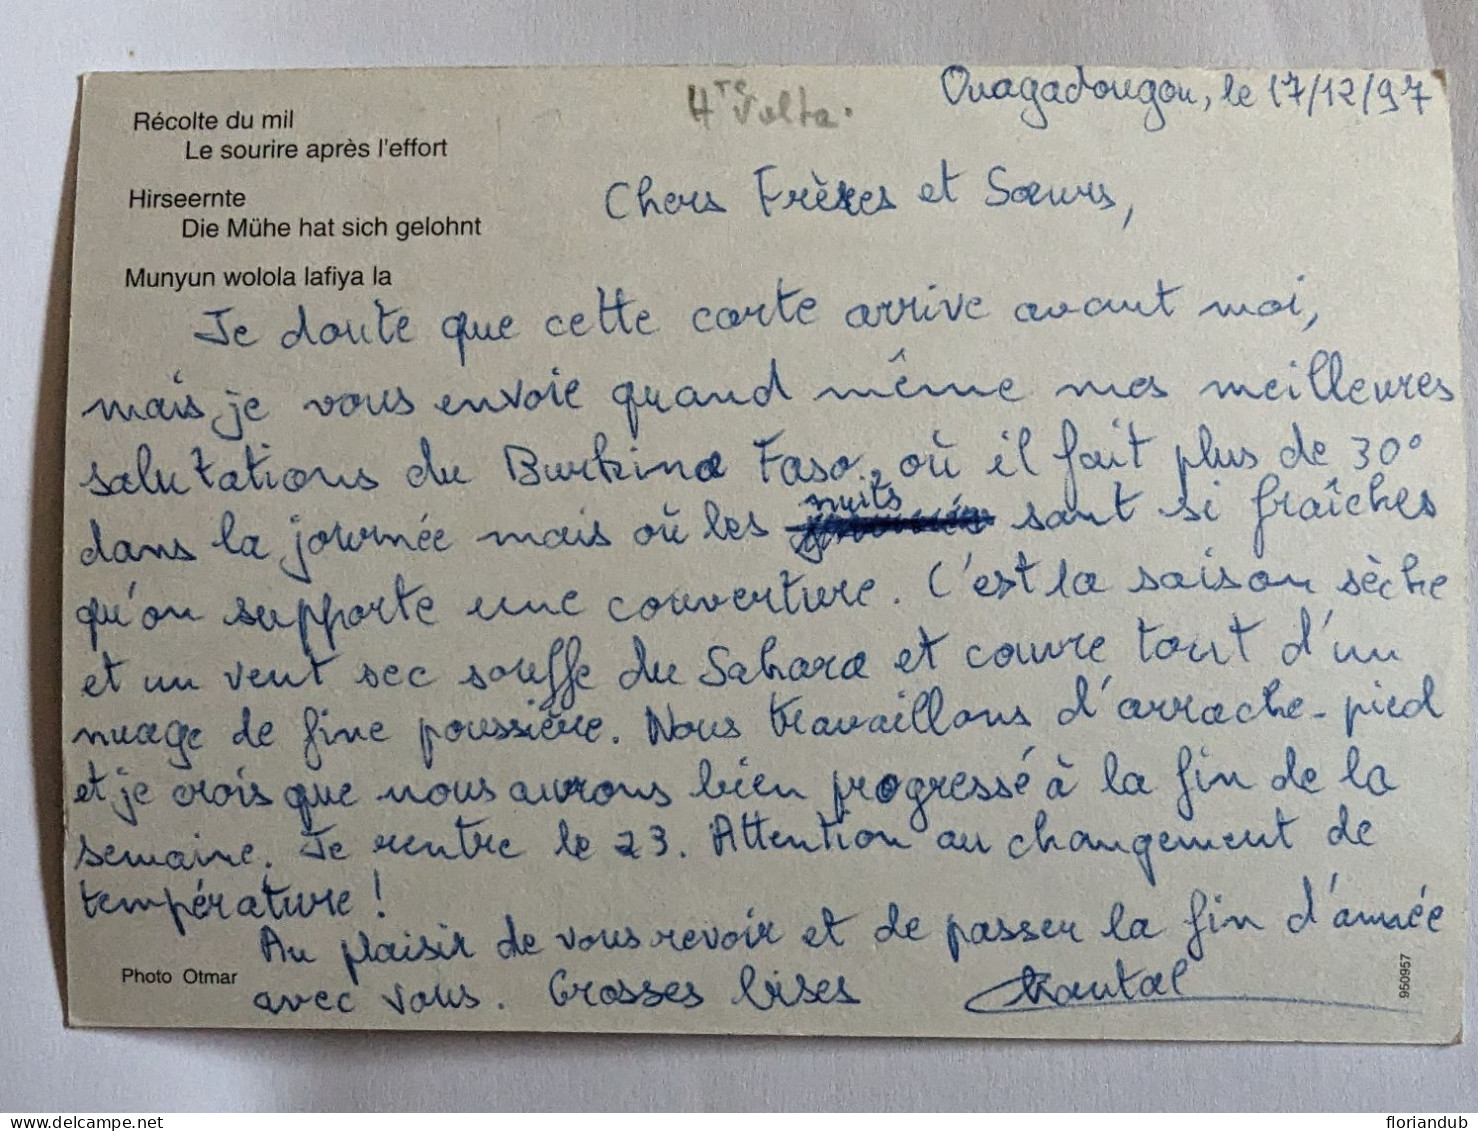 Hte Volta.
Ouagadougou, le 17/12/97
Récolte du mil
Le sourire après l'effort
Hirseernte
Die Mühe hat sich gelohnt
Munyun wolola lafiya la
Chers Frères et Sœurs,
Je doute que cette carte arrive avant moi,
mais je vous envoie quand même mes meilleures
salutations du Burkina Faso, où il fait plus de 30°
dans la journée mais où les nuits sont si fraîches
qu'on supporte une couverture. C'est la saison sèche
et un vent sec souffle du Sahara et couvre tout d'un
nuage de fine poussière. Nous travaillons d'arrache-pied
et je crois que nous aurons bien progressé à la fin de la
semaine. Je rentre le 23. Attention au changement de
température !
Au plaisir de vous revoir et de passer la fin d'année
avec vous. Grosses bises Chantal
Photo Otmar
950957
floriandub